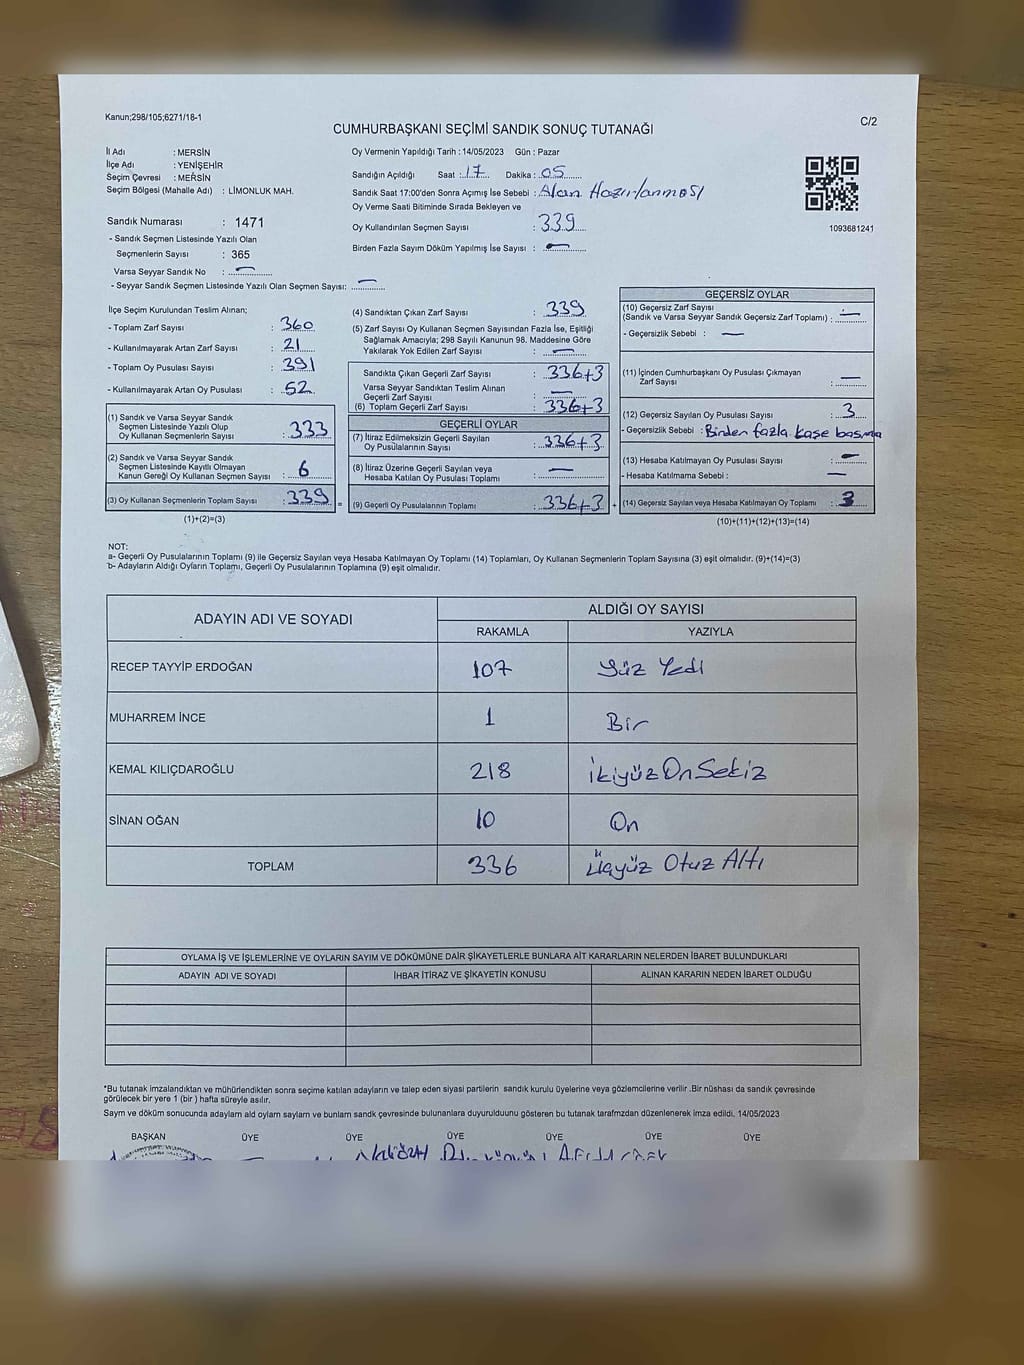 Kanun;298/105;6271/16-1
C/2
CUMHURBAŞKANI SEÇİMİ SANDIK SONUÇ TUTANAĞI
İl Adı : MERSİN
İlçe Adı : YENİŞEHİR
Seçim Çevresi : MERSİN
Seçim Bölgesi (Mahalle Adı) : LİMONLUK MAH.
Sandık Numarası : 1471
- Sandık Seçmen Listesinde Yazılı Olan
Seçmenlerin Sayısı : 365
Varsa Seyyar Sandık No : —
- Seyyar Sandık Seçmen Listesinde Yazılı Olan Seçmen Sayısı: —
Oy Vermenin Yapıldığı Tarih : 14/05/2023 Gün : Pazar
Sandığın Açıldığı Saat : 17 Dakika : 05
Sandık Saat 17:00'den Sonra Açımış İse Sebebi : Alan Hazırlanması
Oy Verme Saati Bitiminde Sırada Bekleyen ve
Oy Kullandırılan Seçmen Sayısı : 339
Birden Fazla Sayım Döküm Yapılmış İse Sayısı : —
1093681241
İlçe Seçim Kurulundan Teslim Alınan;
- Toplam Zarf Sayısı : 360
- Kullanılmayarak Artan Zarf Sayısı : 21
- Toplam Oy Pusulası Sayısı : 391
- Kullanılmayarak Artan Oy Pusulası : 52
(1) Sandık ve Varsa Seyyar Sandık
Seçmen Listesinde Yazılı Olup
Oy Kullanan Seçmenlerin Sayısı : 333
(2) Sandık ve Varsa Seyyar Sandık
Seçmen Listesinde Kayıtlı Olmayan
Kanun Gereği Oy Kullanan Seçmen Sayısı : 6
(3) Oy Kullanan Seçmenlerin Toplam Sayısı : 339 =
(1)+(2)=(3)
(4) Sandıktan Çıkan Zarf Sayısı : 339
(5) Zarf Sayısı Oy Kullanan Seçmen Sayısından Fazla İse, Eşitliği
Sağlamak Amacıyla; 298 Sayılı Kanunun 98. Maddesine Göre
Yakılarak Yok Edilen Zarf Sayısı : —
Sandıkta Çıkan Geçerli Zarf Sayısı : 336+3
Varsa Seyyar Sandıktan Teslim Alınan
Geçerli Zarf Sayısı : —
(6) Toplam Geçerli Zarf Sayısı : 336+3
GEÇERLİ OYLAR
(7) İtiraz Edilmeksizin Geçerli Sayılan
Oy Pusulalarının Sayısı : 336+3
(8) İtiraz Üzerine Geçerli Sayılan veya
Hesaba Katılan Oy Pusulası Toplamı : —
(9) Geçerli Oy Pusulalarının Toplamı : 336+3 +
GEÇERSİZ OYLAR
(10) Geçersiz Zarf Sayısı
(Sandık ve Varsa Seyyar Sandık Geçersiz Zarf Toplamı) : —
- Geçersizlik Sebebi : —
(11) İçinden Cumhurbaşkanı Oy Pusulası Çıkmayan
Zarf Sayısı : —
(12) Geçersiz Sayılan Oy Pusulası Sayısı : 3
- Geçersizlik Sebebi : Birden fazla kaşe basma
(13) Hesaba Katılmayan Oy Pusulası Sayısı : —
- Hesaba Katılmama Sebebi : —
(14) Geçersiz Sayılan veya Hesaba Katılmayan Oy Toplamı : 3
(10)+(11)+(12)+(13)=(14)
NOT:
a- Geçerli Oy Pusulalarının Toplamı (9) ile Geçersiz Sayılan veya Hesaba Katılmayan Oy Toplamı (14) Toplamları, Oy Kullanan Seçmenlerin Toplam Sayısına (3) eşit olmalıdır. (9)+(14)=(3)
b- Adayların Aldığı Oyların Toplamı, Geçerli Oy Pusulalarının Toplamına (9) eşit olmalıdır.
ADAYIN ADI VE SOYADI ALDIĞI OY SAYISI
RAKAMLA YAZIYLA
RECEP TAYYİP ERDOĞAN 107 Yüz Yedi
MUHARREM İNCE 1 Bir
KEMAL KILIÇDAROĞLU 218 İkiyüz On Sekiz
SİNAN OĞAN 10 On
TOPLAM 336 Üçyüz Otuz Altı
OYLAMA İŞ VE İŞLEMLERİNE VE OYLARIN SAYIM VE DÖKÜMÜNE DAİR ŞİKAYETLERLE BUNLARA AİT KARARLARIN NELERDEN İBARET BULUNDUKLARI
ADAYIN ADI VE SOYADI İHBAR İTİRAZ VE ŞİKAYETİN KONUSU ALINAN KARARIN NEDEN İBARET OLDUĞU
*Bu tutanak imzalandıktan ve mühürlendikten sonra seçime katılan adayların ve talep eden siyasi partilerin sandık kurulu üyelerine veya gözlemcilerine verilir .Bir nüshası da sandık çevresinde
görülecek bir yere 1 (bir ) hafta süreyle asılır.
Sayım ve döküm sonucunda adaylarn ald oylarn saylarn ve bunlarn sandk çevresinde bulunanlara duyurulduunu gösteren bu tutanak tarafmzdan düzenlenerek imza edildi. 14/05/2023
BAŞKAN ÜYE ÜYE ÜYE ÜYE ÜYE ÜYE